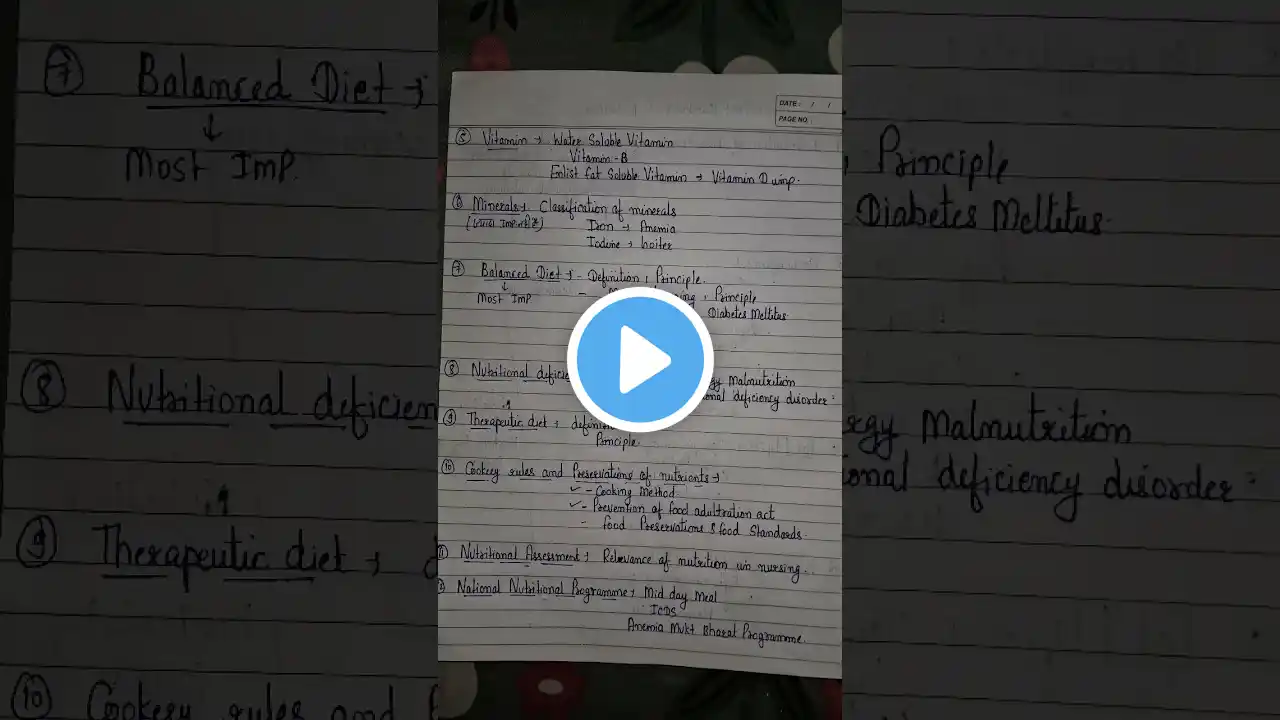 DATE: / /
PAGE NO.
⑤ Vitamin → Water Soluble Vitamin
Vitamin-B
Enlist fat Soluble Vitamin → Vitamin D imp.
⑥ Minerals → Classification of minerals
Iron → Anemia
Iodine → Goiter
⑦ Balanced Diet → - Definition, Principle.
↓
Most Imp
, Principle
Diabetes Mellitus
⑧ Nutritional deficie
gy Malnutrition
onal deficiency disorder
⑨ Therapeutic diet →
Principle
⑩ Cookery rules and Preservations of nutrients →
✓ - Cooking Method
✓ - Prevention of food adultration act
- food Preservations & food Standards.
Nutritional Assessment → Relevance of nutrition in nursing..
National Nutritional Programme → Mid day Meal
ICDS
Anemia Mukt Bharat Programme.
⑦ Balanced Diet →
↓
Most Imp.
⑧ Nutritional deficien
⑨ Therapeutic diet →
⑩ Cookery rules and
Principle
Diabetes Mellitus.
rgy Malnutrition
onal deficiency disorder